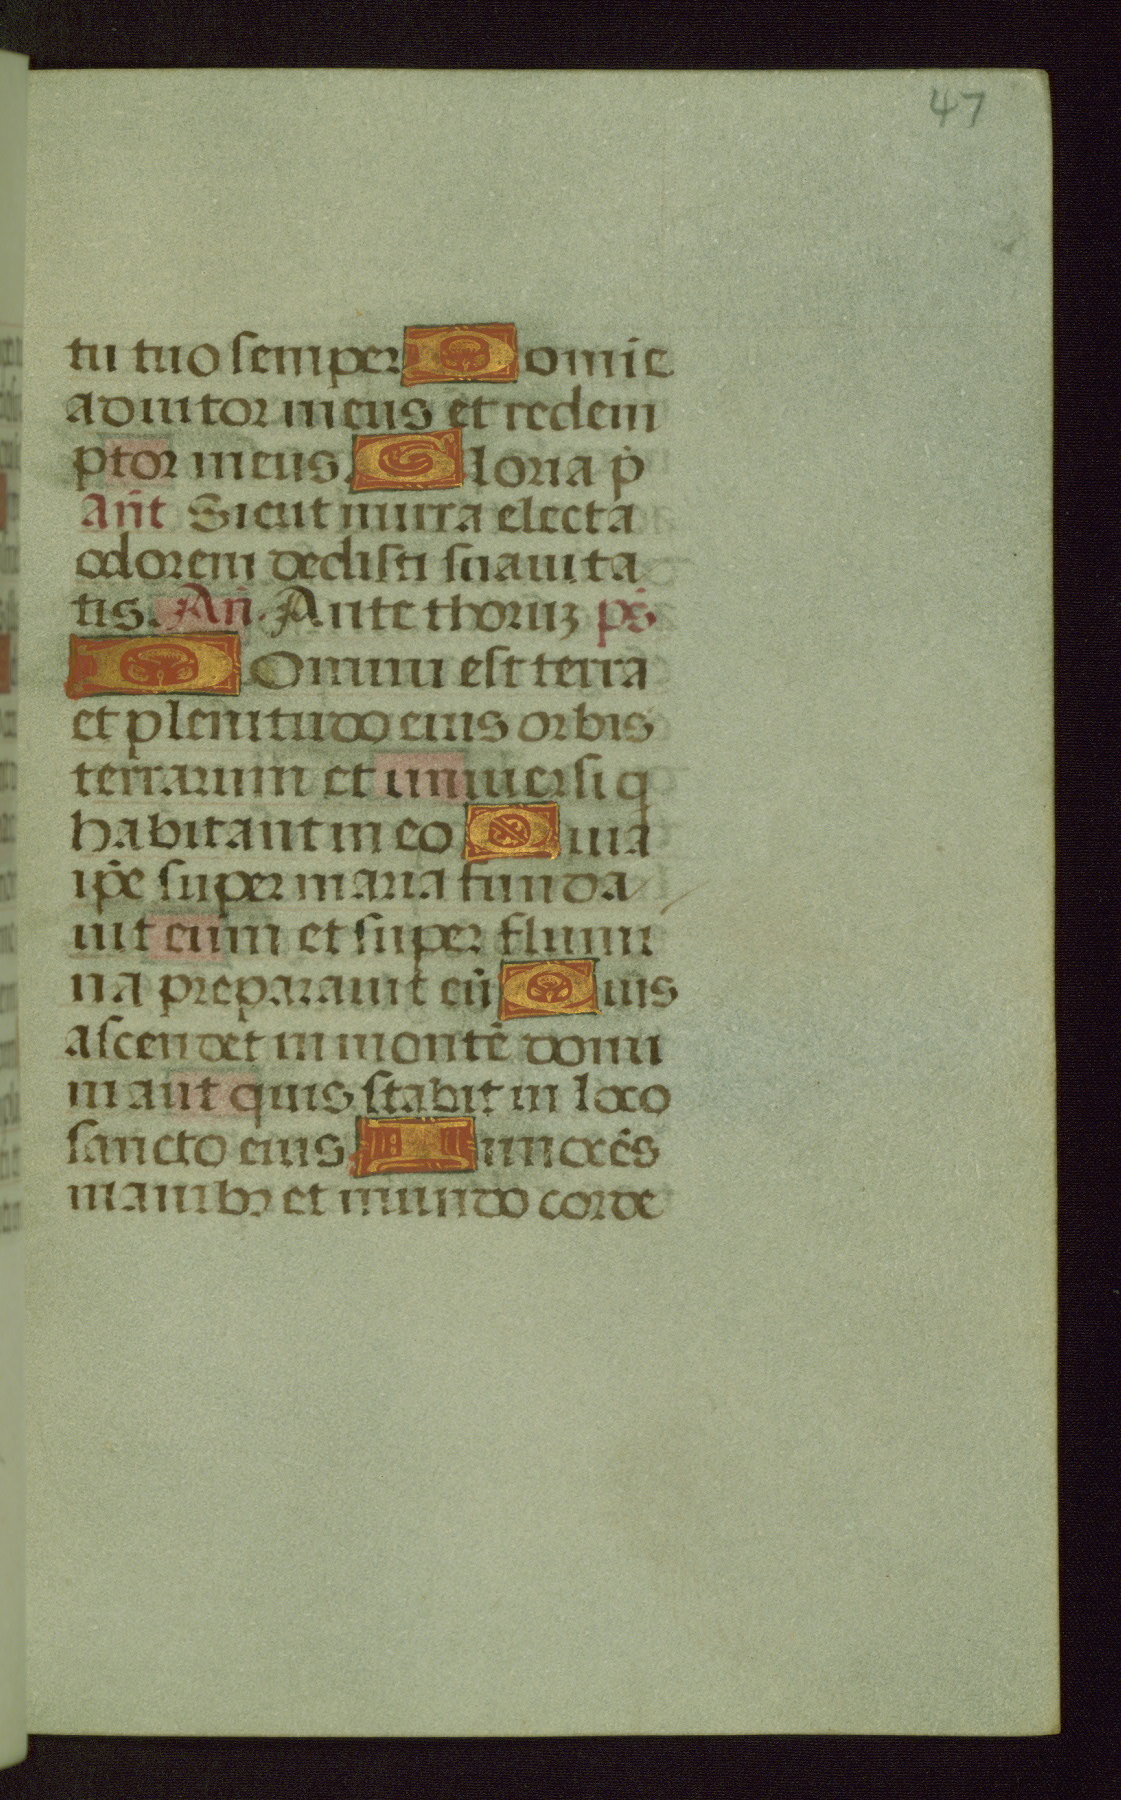 47
tu tuo semper Domine
adiutor meus et redem
ptor meus. Gloria p̄
Añt Sicut mirra electa
odorem dedisti suauita
tis. Añ. Ante thoruꝫ ps̄
Domini est terra
et plenitudo eius orbis
terrarum et uniuersi q̄
habitant in eo Quia
ip̄e super maria funda
uit eum et super flumi
na preparauit eū Quis
ascendet in montē domi
ni aut quis stabit in loco
sancto eius Innocēs
manibꝫ et mundo corde